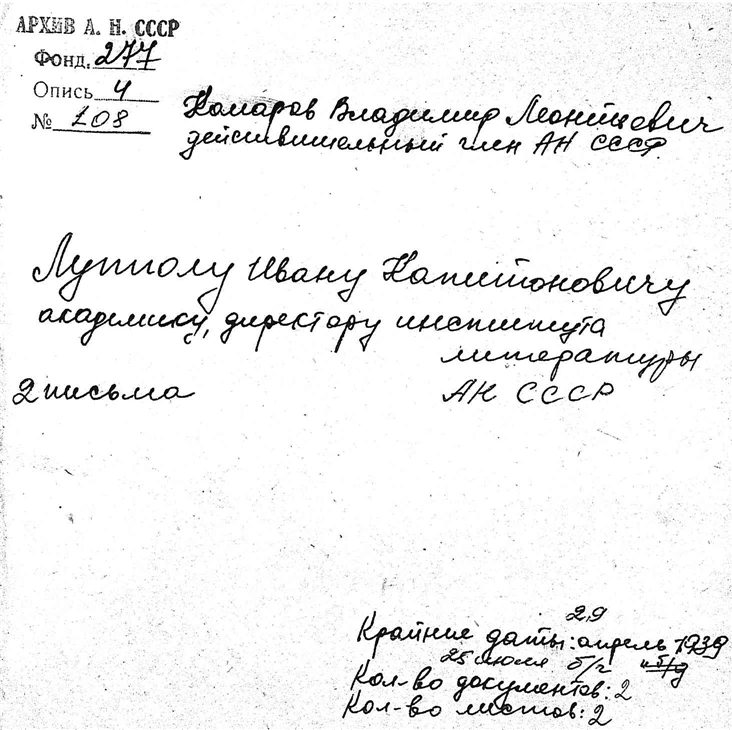 АРХИВ А. Н. СССР
Фонд. 277
Опись 4
№ 108
Комаров Владимир Леонтьевич
действительный член АН СССР.
Лупполу Ивану Капитоновичу
академику, директору института
литературы
2 письма АН СССР
29
Крайние даты: апрель 1939
25 июля б/г и б/д
Кол-во документов: 2
Кол-во листов: 2